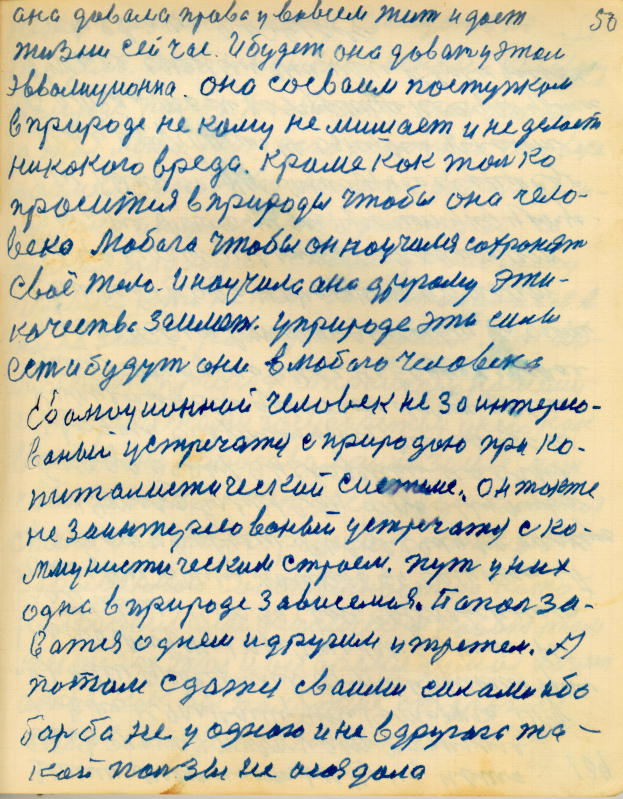 50
ана давала права у вовсем жит и дает
жизни сейчас. И будет она доват у этом
эвволюционна. она сосваим поступком
в природе не кому не мишает и не делает
никокого вреда. Кроме как толко
проситися в природы чтобы она чело-
века любого чтобы он научился сохранят
своё тело. И научила ана другому эти-
качества заимет. у природе эти силы
ест и будут они в любого человека
Эвомоционной человек не заинтересо-
ваный устречатя с природою при ко-
питалистической системе. он также
не заинтересованый устречатя с ко-
ммунистическим строем. пут у них
одна в природе зависемая. Папользо-
ватся однем и другим и третем. А
потом сдатя сваими силами ибо
барба не у одного и не вдругога та-
кой ползы не